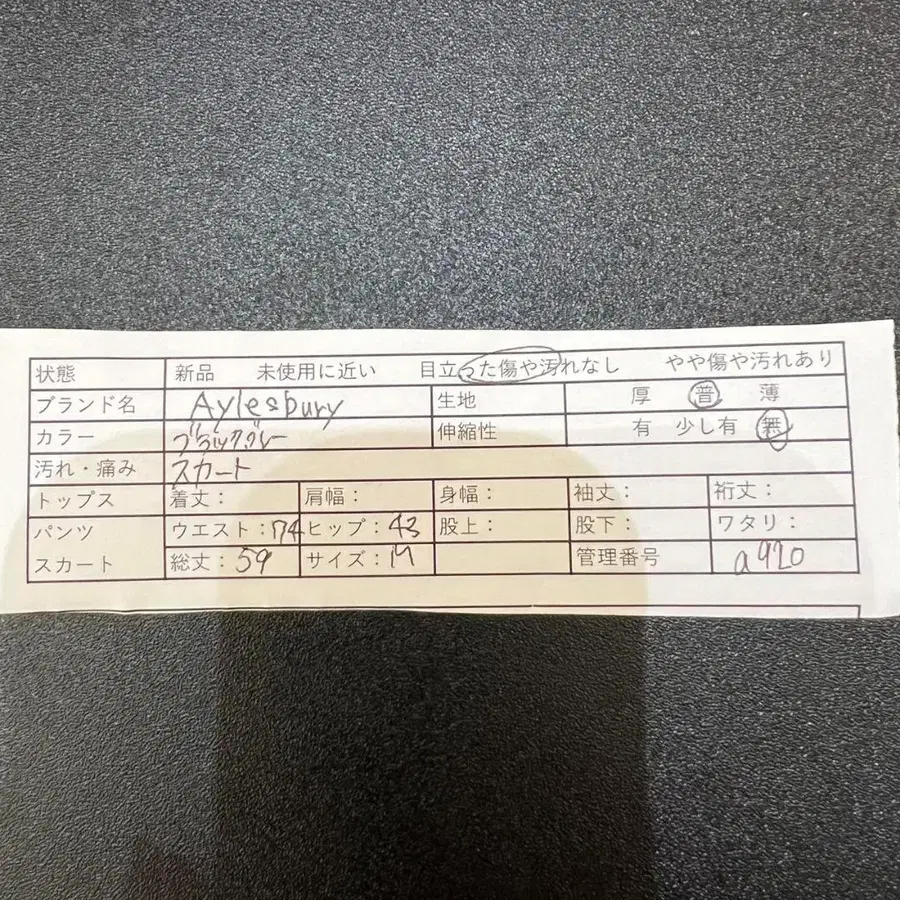 状態 新品 未使用に近い 目立った傷や汚れなし やや傷や汚れあり
ブランド名 Aylesbury 生地 厚 普 薄
カラー ブラックグレー 伸縮性 有 少し有 無
汚れ・痛み スカート
トップス 着丈： 肩幅： 身幅： 袖丈： 裄丈：
パンツ ウエスト：74 ヒップ：43 股上： 股下： ワタリ：
スカート 総丈：59 サイズ：M 管理番号 a920